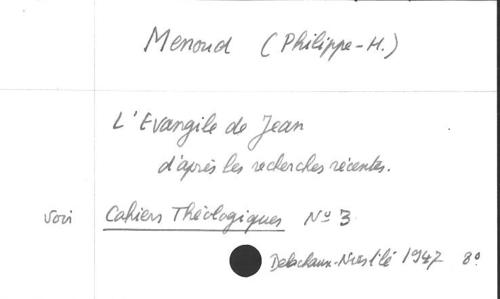 Menoud (Philippe-H.)
L'Evangile de Jean
d'après les recherches récentes.
voir Cahiers Théologiques No 3
Delachaux-Niestlé 1947 8°